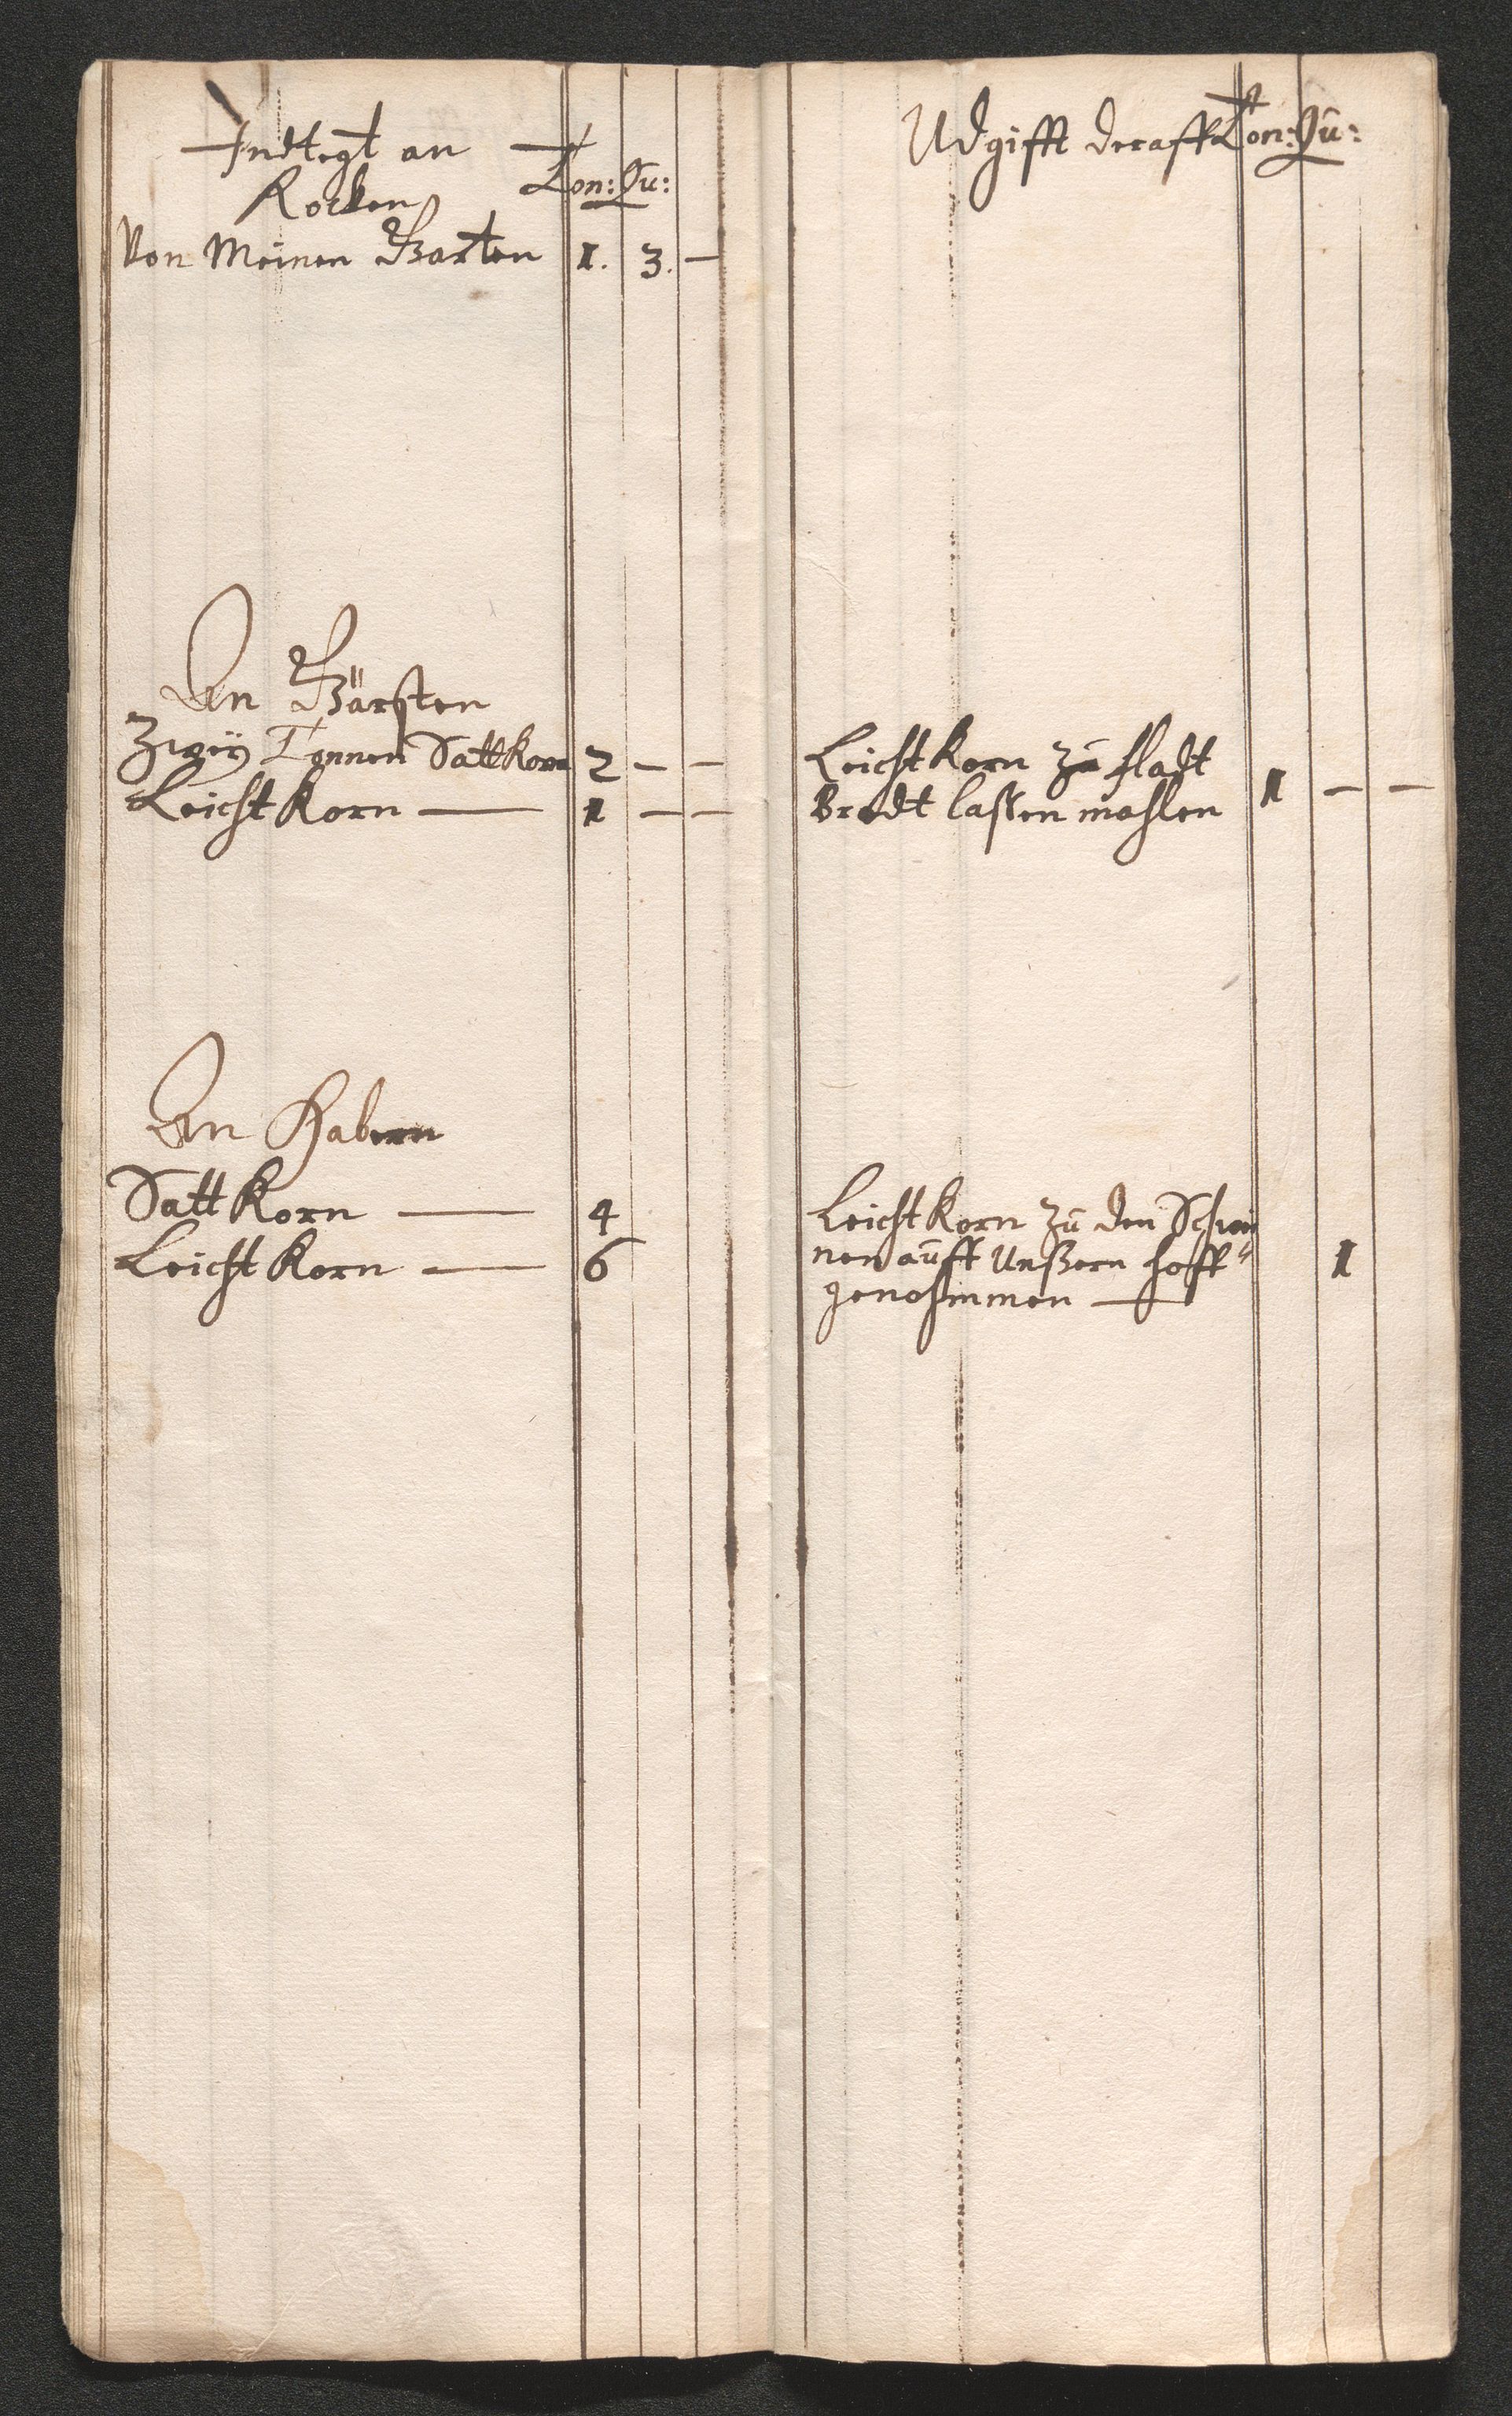 Indtegt an
Rocken Ton: Qu:
Von Meinen Garten 1. 3. –
An Gärsten
Zweÿ Tonnen Sattkorn 2 – –
Leicht Korn — 1 – –
An Habern
Satt Korn — 4
Leicht Korn — 6
Udgifft deraff Ton: Qu:
Leicht Korn zu fladt
Brodt laßen mahlen 1 – –
Leicht Korn zu den Schwei
nen auff Unßern Hoff 1
genohmmen —